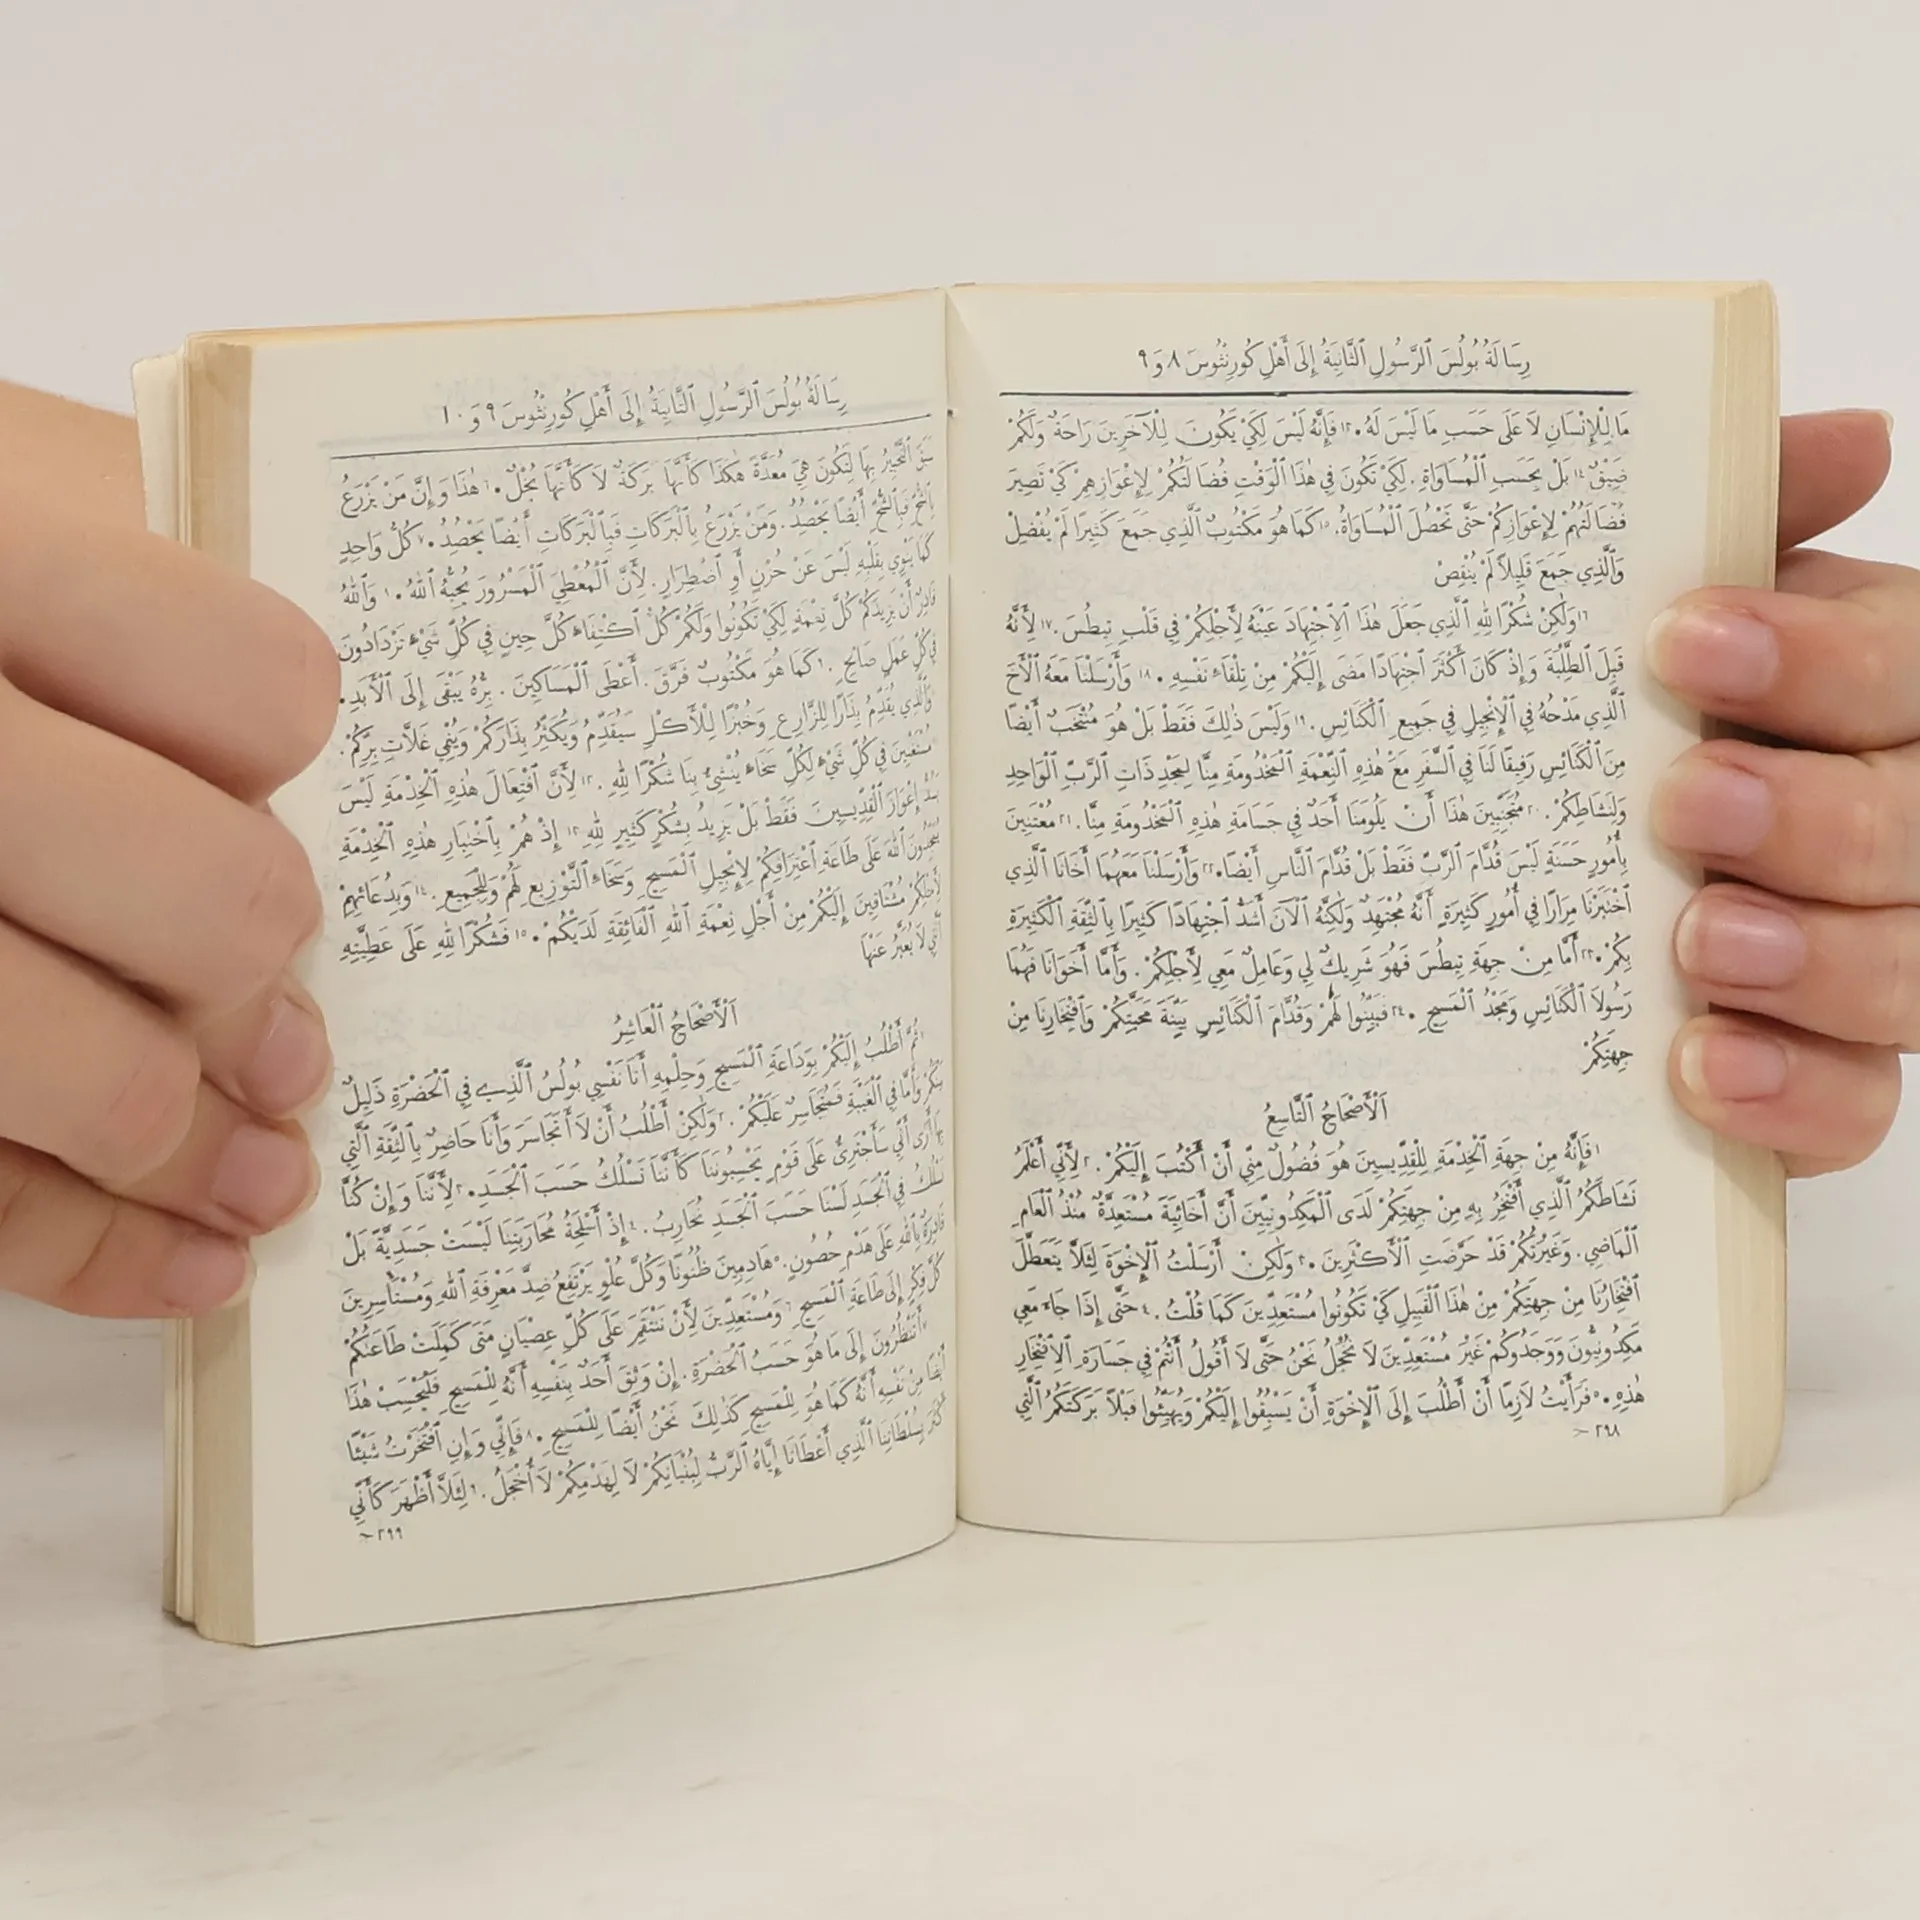 رِسَالَةُ بُولُسَ ٱلرَّسُولِ ٱلثَّانِيَةُ إِلَى أَهْلِ كُورِنْثُوسَ ٨ وَ ٩
مَا لِلْإِنْسَانِ لَا عَلَى حَسَبِ مَا لَيْسَ لَهُ. ١٣ فَإِنَّهُ لَيْسَ لِكَيْ يَكُونَ لِلْآخَرِينَ رَاحَةٌ وَلَكُمْ
ضِيْقٌ ١٤ بَلْ بِحَسَبِ ٱلْمُسَاوَاةِ. لِكَيْ تَكُونَ فِي هٰذَا ٱلْوَقْتِ فُضَالَتُكُمْ لِإِعْوَازِهِمْ كَيْ تَصِيرَ
فُضَالَتُهُمْ لِإِعْوَازِكُمْ حَتَّى تَحْصُلَ ٱلْمُسَاوَاةُ. ١٥ كَمَا هُوَ مَكْتُوبٌ ٱلَّذِي جَمَعَ كَثِيرًا لَمْ يُفْضِلْ
وَٱلَّذِي جَمَعَ قَلِيلاً لَمْ يُنْقِصْ
١٦ وَلٰكِنْ شُكْرًا لِلهِ ٱلَّذِي جَعَلَ هٰذَا ٱلِٱجْتِهَادَ عَيْنَهُ لِأَجْلِكُمْ فِي قَلْبِ تِيطُسَ. ١٧ لِأَنَّهُ
قَبِلَ ٱلطِّلْبَةَ وَإِذْ كَانَ أَكْثَرَ ٱجْتِهَادًا مَضَى إِلَيْكُمْ مِنْ تِلْقَاءِ نَفْسِهِ. ١٨ وَأَرْسَلْنَا مَعَهُ ٱلْأَخَ
ٱلَّذِي مَدْحُهُ فِي ٱلْإِنْجِيلِ فِي جَمِيعِ ٱلْكَنَائِسِ. ١٩ وَلَيْسَ ذٰلِكَ فَقَطْ بَلْ هُوَ مُنْتَخَبٌ أَيْضًا
مِنَ ٱلْكَنَائِسِ رَفِيقًا لَنَا فِي ٱلسَّفَرِ مَعَ هٰذِهِ ٱلنِّعْمَةِ ٱلْمَخْدُومَةِ مِنَّا لِمَجْدِ ذَاتِ ٱلرَّبِّ ٱلْوَاحِدِ
وَلِنَشَاطِكُمْ. ٢٠ مُتَجَنِّبِينَ هٰذَا أَنْ يَلُومَنَا أَحَدٌ فِي جَسَامَةِ هٰذِهِ ٱلْمَخْدُومَةِ مِنَّا. ٢١ مُعْتَنِينَ
بِأُمُورٍ حَسَنَةٍ لَيْسَ قُدَّامَ ٱلرَّبِّ فَقَطْ بَلْ قُدَّامَ ٱلنَّاسِ أَيْضًا. ٢٢ وَأَرْسَلْنَا مَعَهُمَا أَخَانَا ٱلَّذِي
ٱخْتَبَرْنَا مِرَارًا فِي أُمُورٍ كَثِيرَةٍ أَنَّهُ مُجْتَهِدٌ وَلٰكِنَّهُ ٱلْآنَ أَشَدُّ ٱجْتِهَادًا كَثِيرًا بِٱلثِّقَةِ ٱلْكَثِيرَةِ
بِكُمْ. ٢٣ أَمَّا مِنْ جِهَةِ تِيطُسَ فَهُوَ شَرِيكٌ لِي وَعَامِلٌ مَعِي لِأَجْلِكُمْ. وَأَمَّا أَخَوَانَا فَهُمَا
رَسُولَا ٱلْكَنَائِسِ وَمَجْدُ ٱلْمَسِيحِ. ٢٤ فَبَيِّنُوا لَهُمْ وَقُدَّامَ ٱلْكَنَائِسِ بَيِّنَةَ مَحَبَّتِكُمْ وَٱفْتِخَارِنَا مِنْ
جِهَتِكُمْ
ٱلْأَصْحَاحُ ٱلتَّاسِعُ
١ فَإِنَّهُ مِنْ جِهَةِ ٱلْخِدْمَةِ لِلْقِدِّيسِينَ هُوَ فُضُولٌ مِنِّي أَنْ أَكْتُبَ إِلَيْكُمْ. ٢ لِأَنِّي أَعْلَمُ
نَشَاطَكُمُ ٱلَّذِي أَفْتَخِرُ بِهِ مِنْ جِهَتِكُمْ لَدَى ٱلْمَكِدُونِيِّينَ أَنَّ أَخَائِيَةَ مُسْتَعِدَّةٌ مُنْذُ ٱلْعَامِ
ٱلْمَاضِي. وَغَيْرَتُكُمْ قَدْ حَرَّضَتِ ٱلْأَكْثَرِينَ. ٣ وَلٰكِنْ أَرْسَلْتُ ٱلْإِخْوَةَ لِئَلَّا يَتَعَطَّلَ
ٱفْتِخَارُنَا مِنْ جِهَتِكُمْ مِنْ هٰذَا ٱلْقَبِيلِ كَيْ تَكُونُوا مُسْتَعِدِّينَ كَمَا قُلْتُ. ٤ حَتَّى إِذَا جَاءَ مَعِي
مَكِدُونِيُّونَ وَوَجَدُوكُمْ غَيْرَ مُسْتَعِدِّينَ لَا نُخْجَلُ نَحْنُ حَتَّى لَا أَقُولُ أَنْتُمْ فِي جَسَارَةِ ٱلِٱفْتِخَارِ
هٰذِهِ. ٥ فَرَأَيْتُ لَازِمًا أَنْ أَطْلُبَ إِلَى ٱلْإِخْوَةِ أَنْ يَسْبِقُوا إِلَيْكُمْ وَيُهَيِّئُوا قَبْلاً بَرَكَتَكُمُ ٱلَّتِي
٢٩٨
رِسَالَةُ بُولُسَ ٱلرَّسُولِ ٱلثَّانِيَةُ إِلَى أَهْلِ كُورِنْثُوسَ ٩ وَ ١٠
سَبَقَ ٱلتَّخْبِيرُ بِهَا لِتَكُونَ هِيَ مُعَدَّةً هٰكَذَا كَأَنَّهَا بَرَكَةٌ لَا كَأَنَّهَا بُخْلٌ. ٦ هٰذَا وَإِنَّ مَنْ يَزْرَعُ
بِٱلشُّحِّ فَبِٱلشُّحِّ أَيْضًا يَحْصُدُ. وَمَنْ يَزْرَعُ بِٱلْبَرَكَاتِ فَبِٱلْبَرَكَاتِ أَيْضًا يَحْصُدُ. ٧ كُلُّ وَاحِدٍ
كَمَا يَنْوِي بِقَلْبِهِ لَيْسَ عَنْ حُزْنٍ أَوِ ٱضْطِرَارٍ. لِأَنَّ ٱلْمُعْطِيَ ٱلْمَسْرُورَ يُحِبُّهُ ٱللهُ. ٨ وَٱللهُ
قَادِرٌ أَنْ يَزِيدَكُمْ كُلَّ نِعْمَةٍ لِكَيْ تَكُونُوا وَلَكُمْ كُلُّ ٱكْتِفَاءٍ كُلَّ حِينٍ فِي كُلِّ شَيْءٍ تَزْدَادُونَ
فِي كُلِّ عَمَلٍ صَالِحٍ. ٩ كَمَا هُوَ مَكْتُوبٌ فَرَّقَ. أَعْطَى ٱلْمَسَاكِينَ. بِرُّهُ يَبْقَى إِلَى ٱلْأَبَدِ.
وَٱلَّذِي يُقَدِّمُ بِذَارًا لِلزَّارِعِ وَخُبْزًا لِلْأَكْلِ سَيُقَدِّمُ وَيُكَثِّرُ بِذَارَكُمْ وَيُنْمِي غَلَّاتِ بِرِّكُمْ.
مُسْتَغْنِينَ فِي كُلِّ شَيْءٍ لِكُلِّ سَخَاءٍ يُنْشِئُ بِنَا شُكْرًا لِلهِ. ١٢ لِأَنَّ ٱفْتِعَالَ هٰذِهِ ٱلْخِدْمَةِ لَيْسَ
يَسُدُّ إِعْوَازَ ٱلْقِدِّيسِينَ فَقَطْ بَلْ يَزِيدُ بِشُكْرٍ كَثِيرٍ لِلهِ ١٣ إِذْ هُمْ بِٱخْتِبَارِ هٰذِهِ ٱلْخِدْمَةِ
يُمَجِّدُونَ ٱللهَ عَلَى طَاعَةِ ٱعْتِرَافِكُمْ لِإِنْجِيلِ ٱلْمَسِيحِ وَسَخَاءِ ٱلتَّوْزِيعِ لَهُمْ وَلِلْجَمِيعِ. ١٤ وَبِدُعَائِهِمْ
لِأَجْلِكُمْ مُشْتَاقِينَ إِلَيْكُمْ مِنْ أَجْلِ نِعْمَةِ ٱللهِ ٱلْفَائِقَةِ لَدَيْكُمْ. ١٥ فَشُكْرًا لِلهِ عَلَى عَطِيَّتِهِ
ٱلَّتِي لَا يُعَبَّرُ عَنْهَا
ٱلْأَصْحَاحُ ٱلْعَاشِرُ
١ ثُمَّ أَطْلُبُ إِلَيْكُمْ بِوَدَاعَةِ ٱلْمَسِيحِ وَحِلْمِهِ أَنَا نَفْسِي بُولُسُ ٱلَّذِي فِي ٱلْحَضْرَةِ ذَلِيلٌ
بَيْنَكُمْ وَأَمَّا فِي ٱلْغَيْبَةِ فَمُتَجَاسِرٌ عَلَيْكُمْ. ٢ وَلٰكِنْ أَطْلُبُ أَنْ لَا أَتَجَاسَرَ وَأَنَا حَاضِرٌ بِٱلثِّقَةِ ٱلَّتِي
بِهَا أَرَى أَنِّي سَأَجْتَرِئُ عَلَى قَوْمٍ يَحْسِبُونَنَا كَأَنَّنَا نَسْلُكُ حَسَبَ ٱلْجَسَدِ. ٣ لِأَنَّنَا وَإِنْ كُنَّا
نَسْلُكُ فِي ٱلْجَسَدِ لَسْنَا حَسَبَ ٱلْجَسَدِ نُحَارِبُ. ٤ إِذْ أَسْلِحَةُ مُحَارَبَتِنَا لَيْسَتْ جَسَدِيَّةً بَلْ
قَادِرَةٌ بِٱللهِ عَلَى هَدْمِ حُصُونٍ. ٥ هَادِمِينَ ظُنُونًا وَكُلَّ عُلْوٍ يَرْتَفِعُ ضِدَّ مَعْرِفَةِ ٱللهِ وَمُسْتَأْسِرِينَ
كُلَّ فِكْرٍ إِلَى طَاعَةِ ٱلْمَسِيحِ ٦ وَمُسْتَعِدِّينَ لِأَنْ نَنْتَقِمَ عَلَى كُلِّ عِصْيَانٍ مَتَى كَمِلَتْ طَاعَتُكُمْ
٧ أَتَنْظُرُونَ إِلَى مَا هُوَ حَسَبُ ٱلْحَضْرَةِ. إِنْ وَثِقَ أَحَدٌ بِنَفْسِهِ أَنَّهُ لِلْمَسِيحِ فَلْيَحْسِبْ هٰذَا
أَيْضًا مِنْ نَفْسِهِ أَنَّهُ كَمَا هُوَ لِلْمَسِيحِ كَذٰلِكَ نَحْنُ أَيْضًا لِلْمَسِيحِ. ٨ فَإِنِّي وَإِنِ ٱفْتَخَرْتُ شَيْئًا
أَكْثَرَ بِسُلْطَانِنَا ٱلَّذِي أَعْطَانَا إِيَّاهُ ٱلرَّبُّ لِبُنْيَانِكُمْ لَا لِهَدْمِكُمْ لَا أُخْجَلُ. ٩ لِئَلَّا أَظْهَرَ كَأَنِّي
٢٩٩